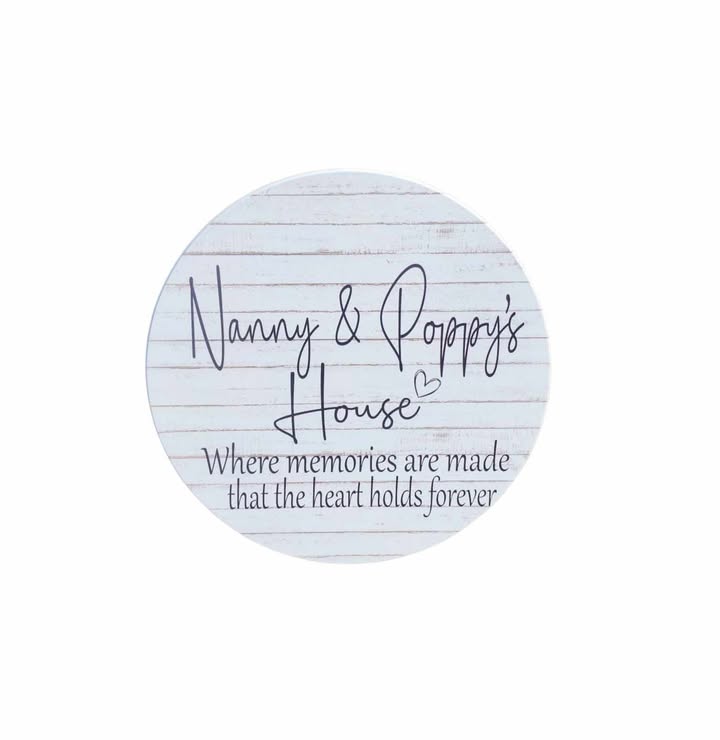 Nanny & Poppy's
House
Where memories are made
that the heart holds forever